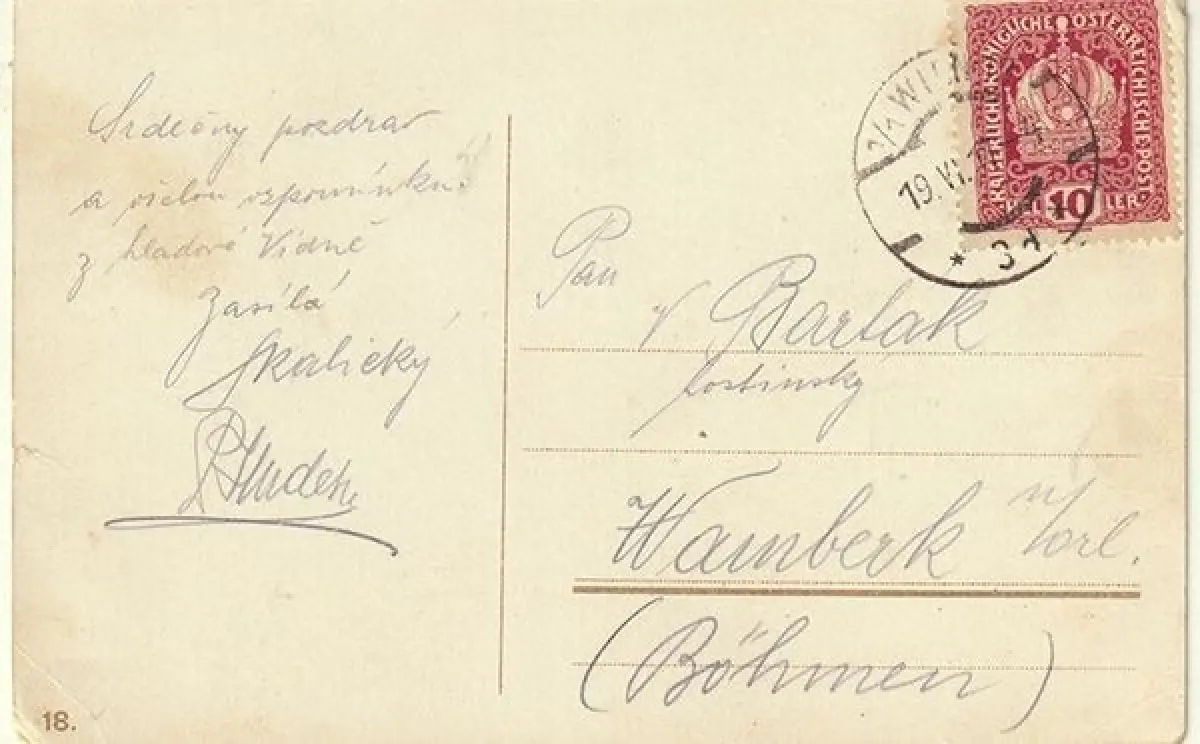 Srdečný pozdrav
a vřelou vzpomínku
z hladové Vídně
zasílá
Skalický
Pan
V Barták
hostinský
Wamberk n/
Orl.
(Böhmen)
KAISERLICHE KÖNIGLICHE ÖSTERREICHISCHE POST
10
WIEN
19. VI.
* 3d
18.